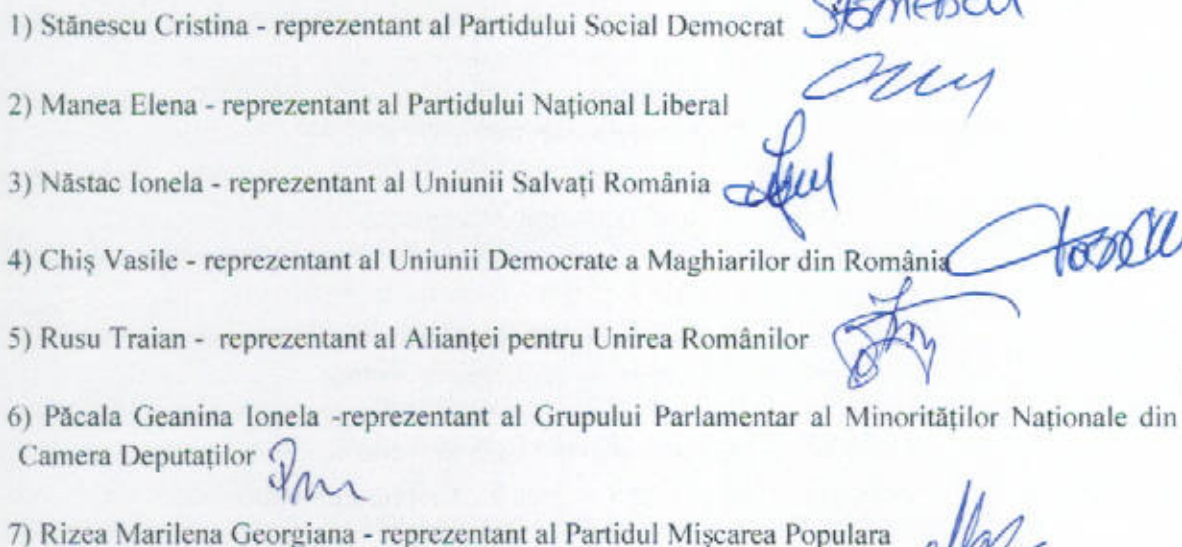 1) Stănescu Cristina - reprezentant al Partidului Social Democrat Stănescu
2) Manea Elena - reprezentant al Partidului Național Liberal
3) Năstac Ionela - reprezentant al Uniunii Salvați România
4) Chiș Vasile - reprezentant al Uniunii Democrate a Maghiarilor din România
5) Rusu Traian - reprezentant al Alianței pentru Unirea Românilor
6) Păcala Geanina Ionela -reprezentant al Grupului Parlamentar al Minorităților Naționale din
Camera Deputaților
7) Rizea Marilena Georgiana - reprezentant al Partidul Mișcarea Populara